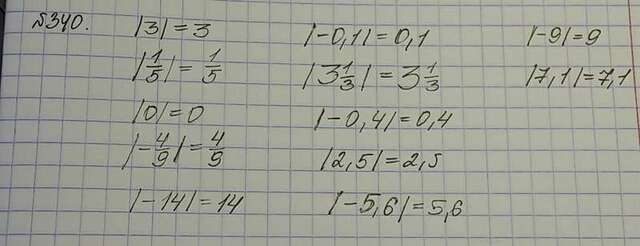 №340. |3| = 3 |-0,1| = 0,1 |-9| = 9
|1/5| = 1/5 |3 1/3| = 3 1/3 |7,1| = 7,1
|0| = 0 |-0,4| = 0,4
|-4/9| = 4/9 |2,5| = 2,5
|-14| = 14 |-5,6| = 5,6